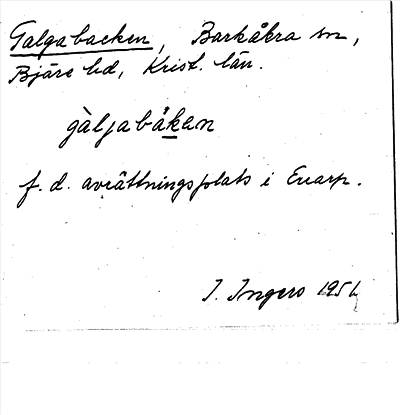 Galgabacken, Barkåkra sn,
Bjäre hd, Krist. län.
gàljabåken
f. d. avrättningsplats i Errarp.
I. Ingers 1951